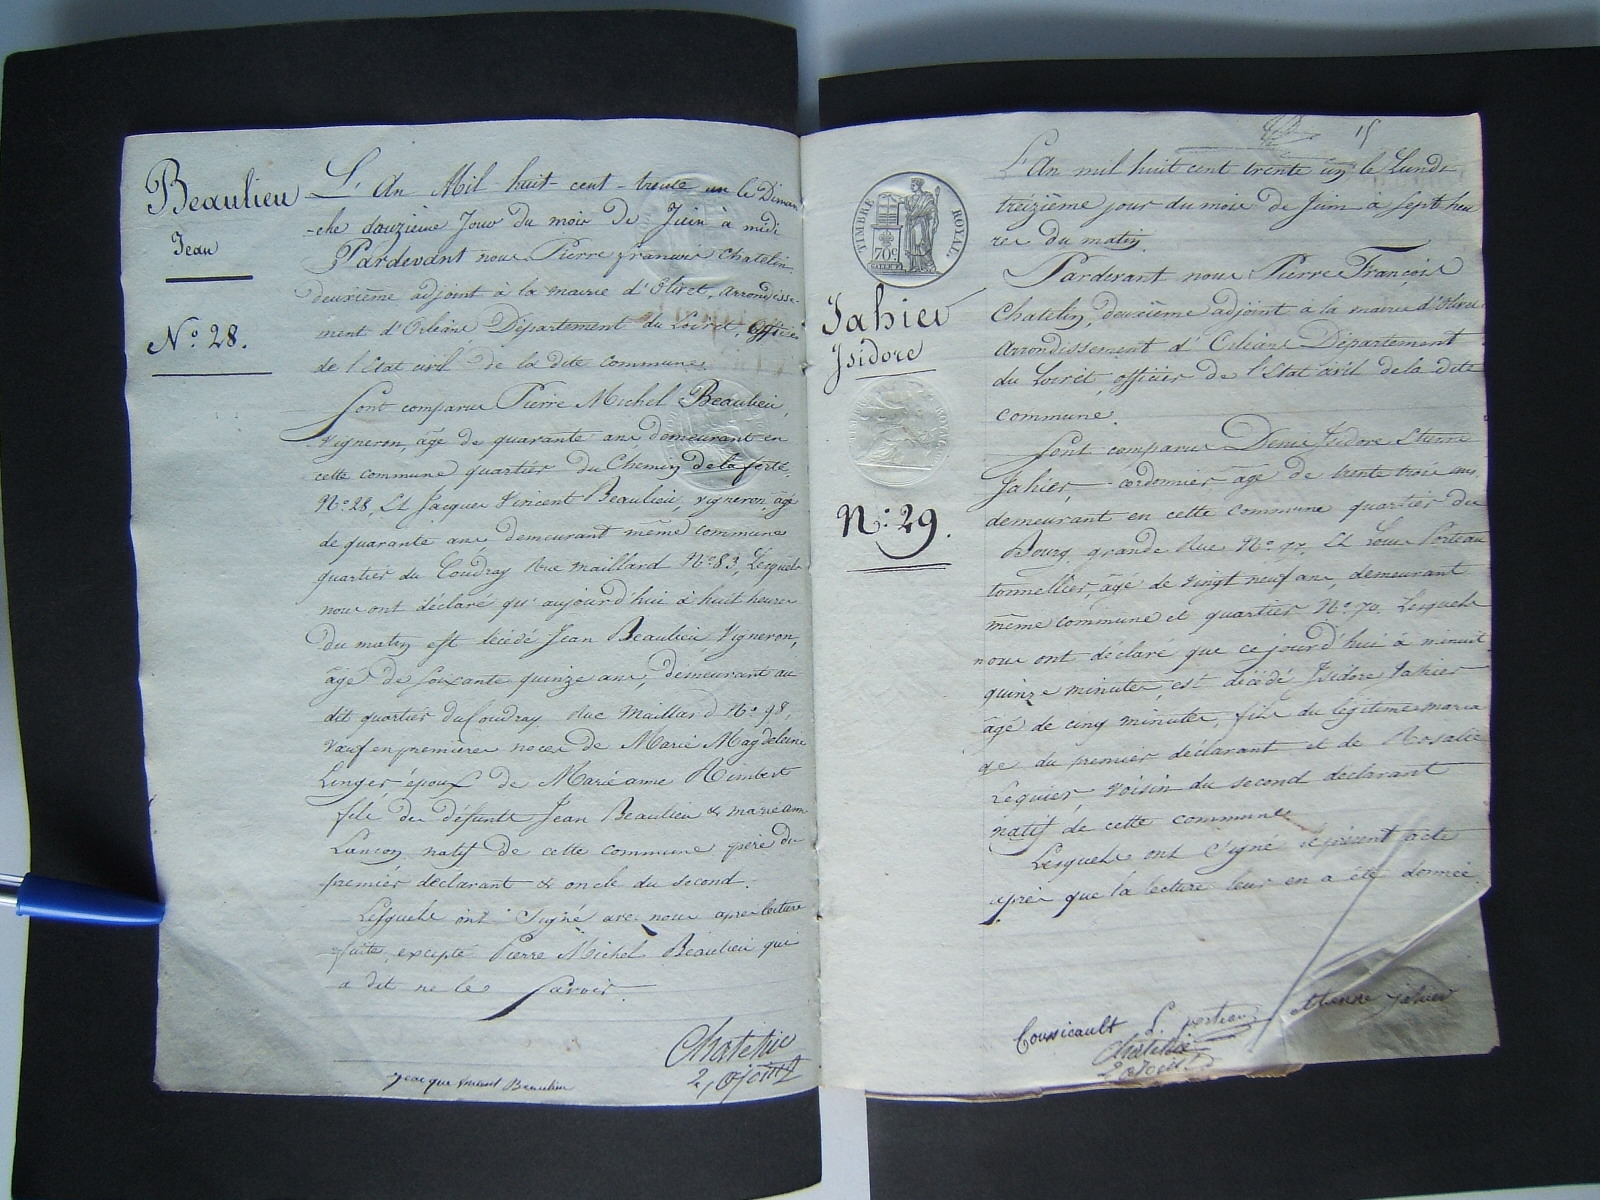 Beaulieu
Jean
N.º 28.
L'An Mil huit cent trente un le Diman
-che douzieme Jour du mois de Juin à midi
Pardevant nous Pierre françois Chatelin
deuxième adjoint à la mairie d'Olivet, arrondisse-
ment d'Orléans Département du Loiret, officier
de l'Etat civil de la dite commune.
Sont comparus Pierre Michel Beaulieu,
Vigneron, âgé de quarante ans demeurant en
cette commune quartier du Chemin de la ferté
N.º 28, Et Jacques Vincent Beaulieu, vigneron, âgé
de quarante ans, demeurant même commune
quartier du Coudray Rue maillard N.º 83, Lesquels
nous ont déclaré qu'aujourd'hui à huit heures
du matin est décédé Jean Beaulieu Vigneron,
âgé de soixante quinze ans, demeurant au
dit quartier du Coudray Rue Maillard N.º 98,
veuf en premières noces de Marie Magdeleine
Linger époux de Marie anne Rimbert
fils des défunts Jean Beaulieu & marie ann
Lançon, natif de cette commune père du
premier déclarant & oncle du second.
Lesquels ont Signé avec nous après lecture
faite, excepté Pierre Michel Beaulieu qui
a dit ne le Savoir.
Chatelin
2e adjoint
Jacque vincent Beaulieu
15
TIMBRE ROYAL.
70c
Jahier
Isidore
N.º 29.
L'An mil huit cent trente un le Lundi
treizième jour du mois de Juin à sept heu
res du matin.
Pardevant nous Pierre François
Chatelin, deuxième adjoint à la mairie d'Olivet
arrondissement d'Orléans Département
du Loiret, officier de l'Etat civil de la dite
commune.
Sont comparus Denis Isidore Etienne
Jahier, cordonnier âgé de trente trois ans,
demeurant en cette commune quartier du
Bourg, grande Rue N.º Et Louis Porteau
tonnellier, âgé de vingt neuf ans, demeurant
même commune et quartier N.º 70, Lesquels
nous ont déclaré que ce jourd'hui à minuit
quinze minutes, est décédé Isidore Jahier
âgé de cinq minutes, fils du légitime maria
ge du premier déclarant et de Rosalie
Lequier, Voisin du second déclarant
natif de cette commune
Lesquels ont Signé le présent acte
après que la lecture leur en a été donnée
Coussicault L. porteau etienne jahier
Chatelin
2e adjoint